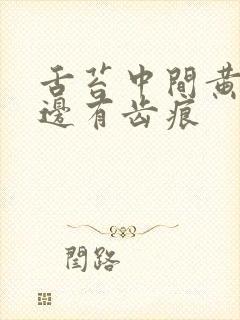 舌苔中間黃
邊有齿痕
閆路